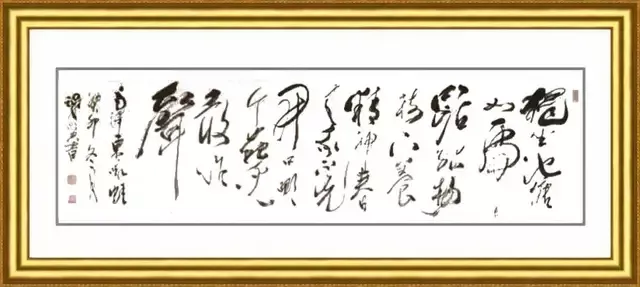 獨坐池塘
如虎
踞綠
樹下養
精神春
来我不先
开口哪
个蟲兒
敢作
聲
毛澤東咏蛙
癸卯冬月
書